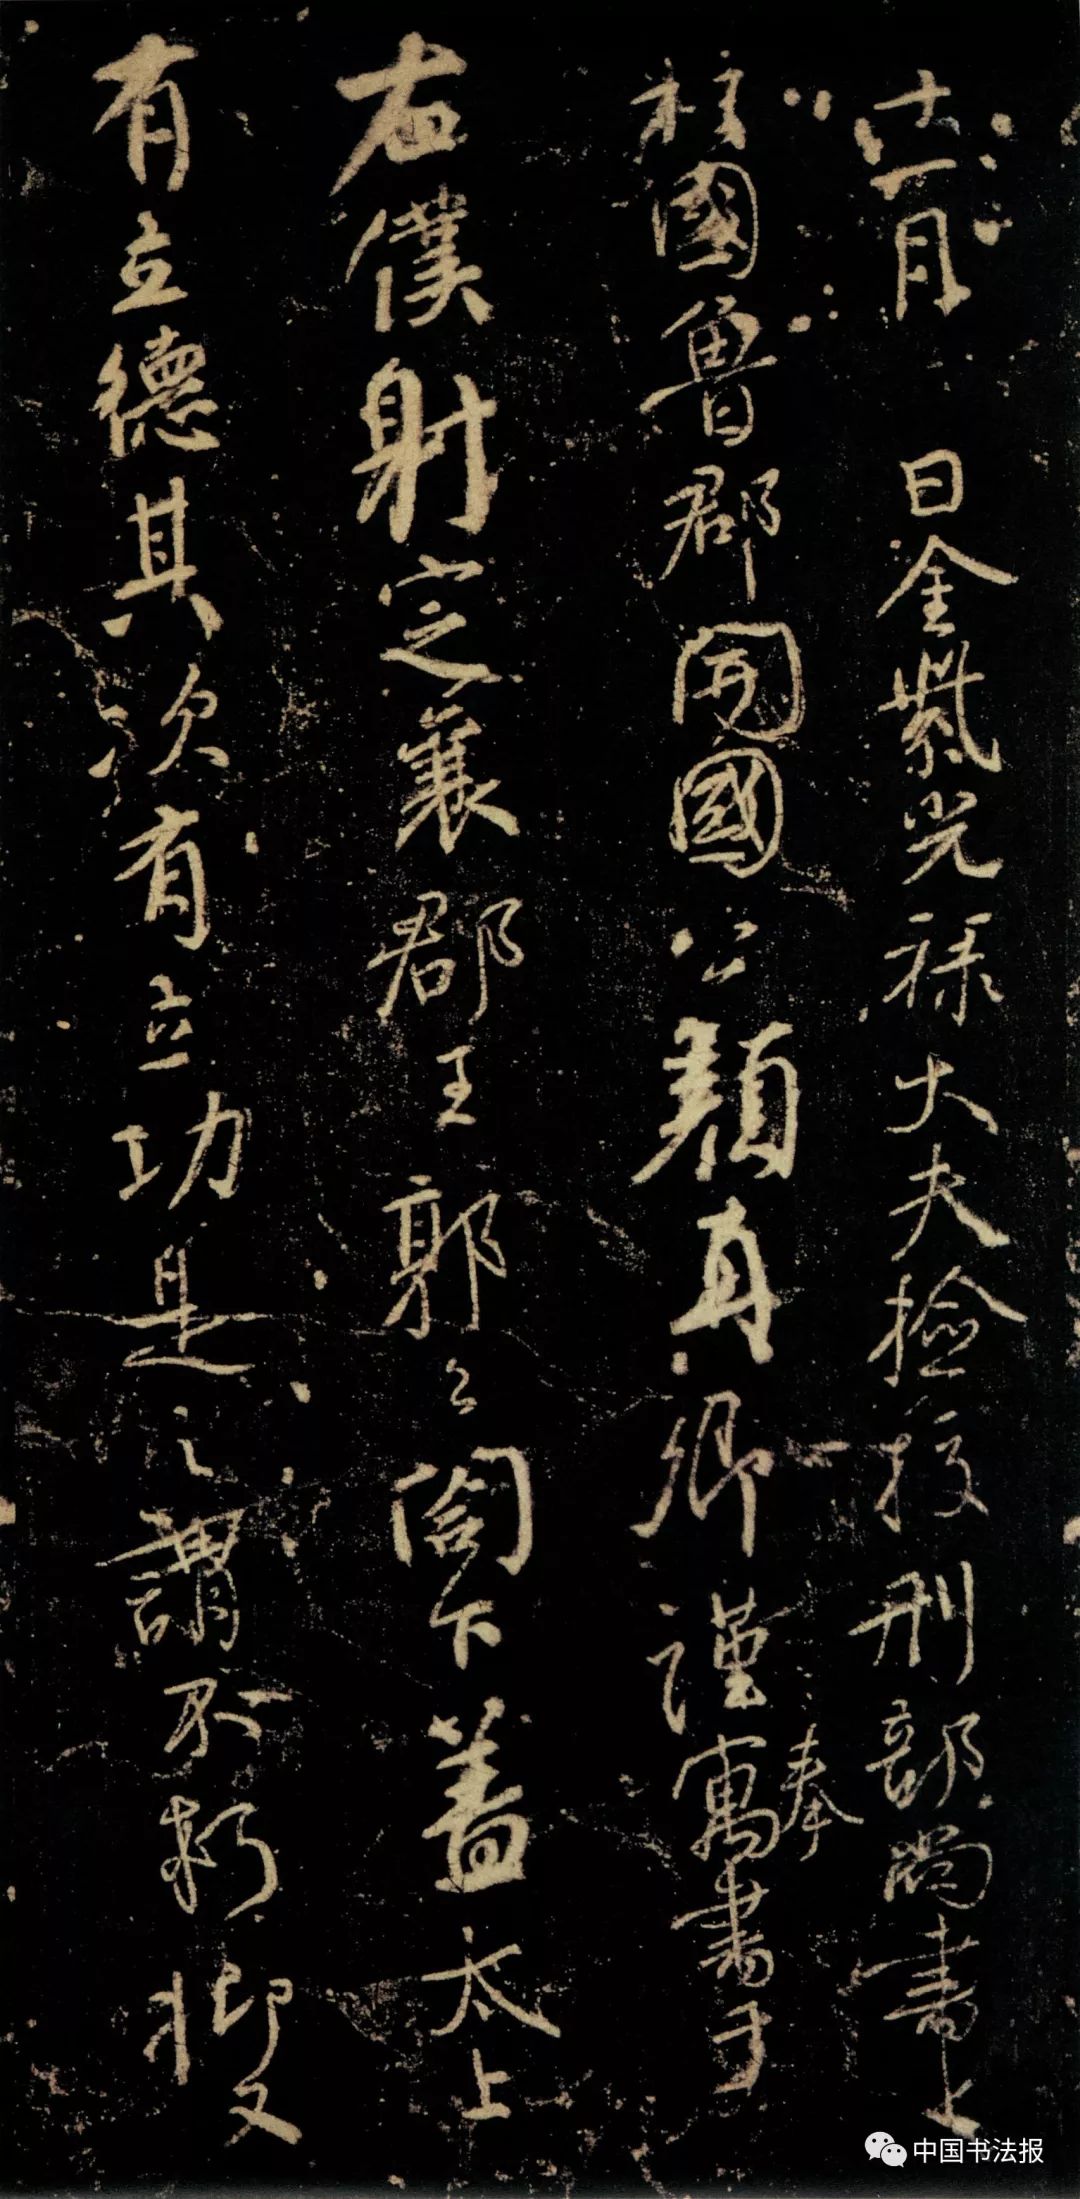 十一月　日金紫光祿大夫檢校刑部尚書上
柱國魯郡開國公顏真卿謹奉寓書于
右僕射定襄郡王郭公閤下蓋太上
有立德其次有立功是之謂不朽抑又
中国书法报